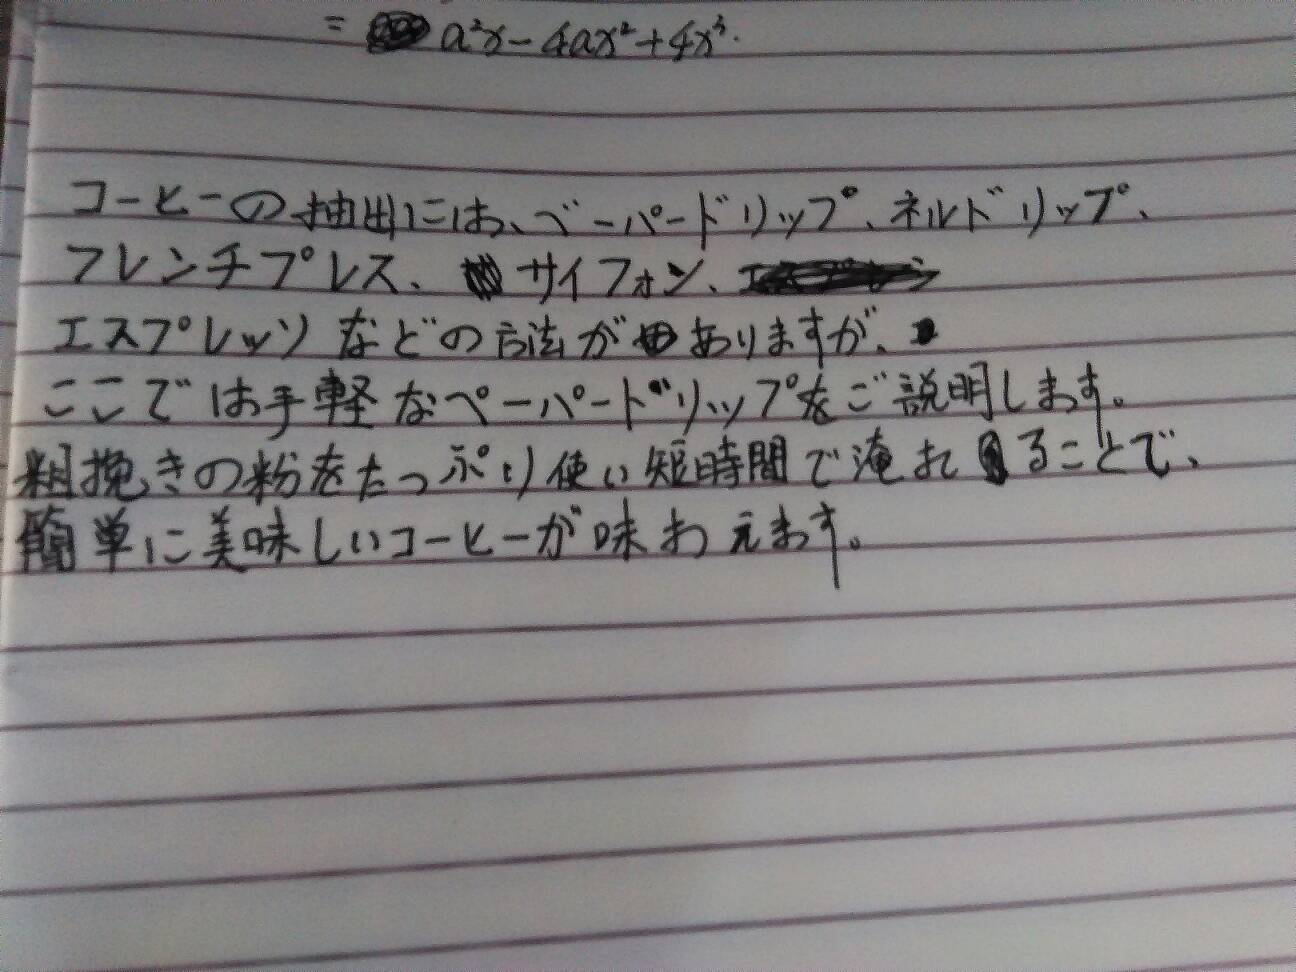 = a²x-4ax²+4x³.
コーヒーの抽出には、ペーパードリップ、ネルドリップ、
フレンチプレス、サイフォン、
エスプレッソなどの方法がありますが、
ここでは手軽なペーパードリップをご説明します。
粗挽きの粉をたっぷり使い短時間で淹れることで、
簡単に美味しいコーヒーが味わえます。